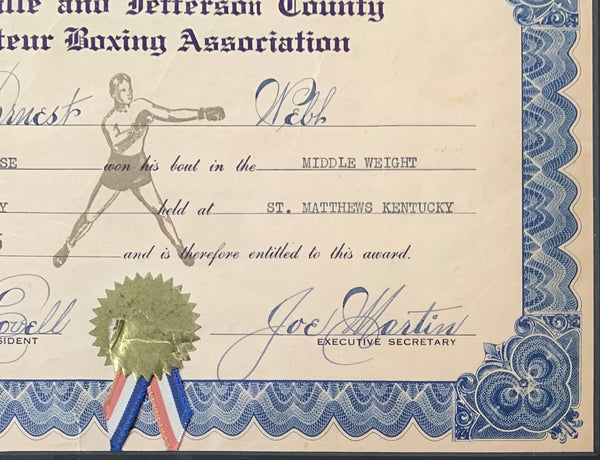 ille and Jefferson County
teur Boxing Association
rnest Webb
SE won his bout in the MIDDLE WEIGHT
Y held at ST. MATTHEWS KENTUCKY
5 and is therefore entitled to this award.
Covell Joe Martin
SIDENT EXECUTIVE SECRETARY